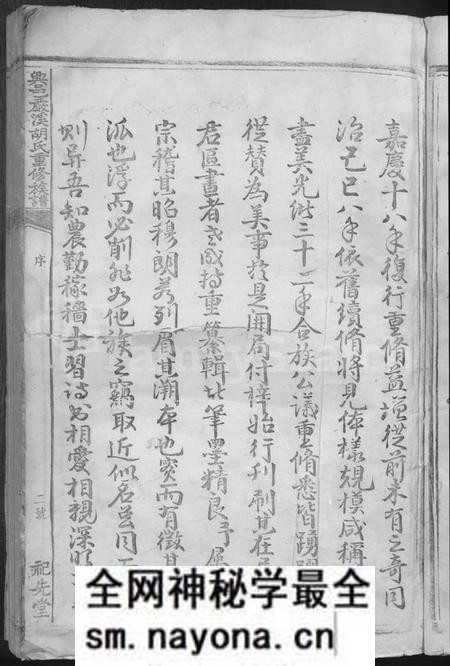 嘉慶十八年復行重脩益謚從前未有之奇同
治己巳八年依舊續脩將見体樣䂓模咸稱
盡美光緒三十二年合族公議重脩悉皆踴躍
從贊為美事於是開局付梓始行刊刷其在
君區畫者老成持重纂輯此筆墨精良予属
宗稽其昭穆朗若列眉其溯本也實而有徵其
派也浮而必削非如他族之竊取近似名
則异吾知農勤稼穡士習詩書相愛相親深
興邑巖溪胡氏重修族譜
序
二號
祀先堂
全网神秘学最全
sm.nayona.cn